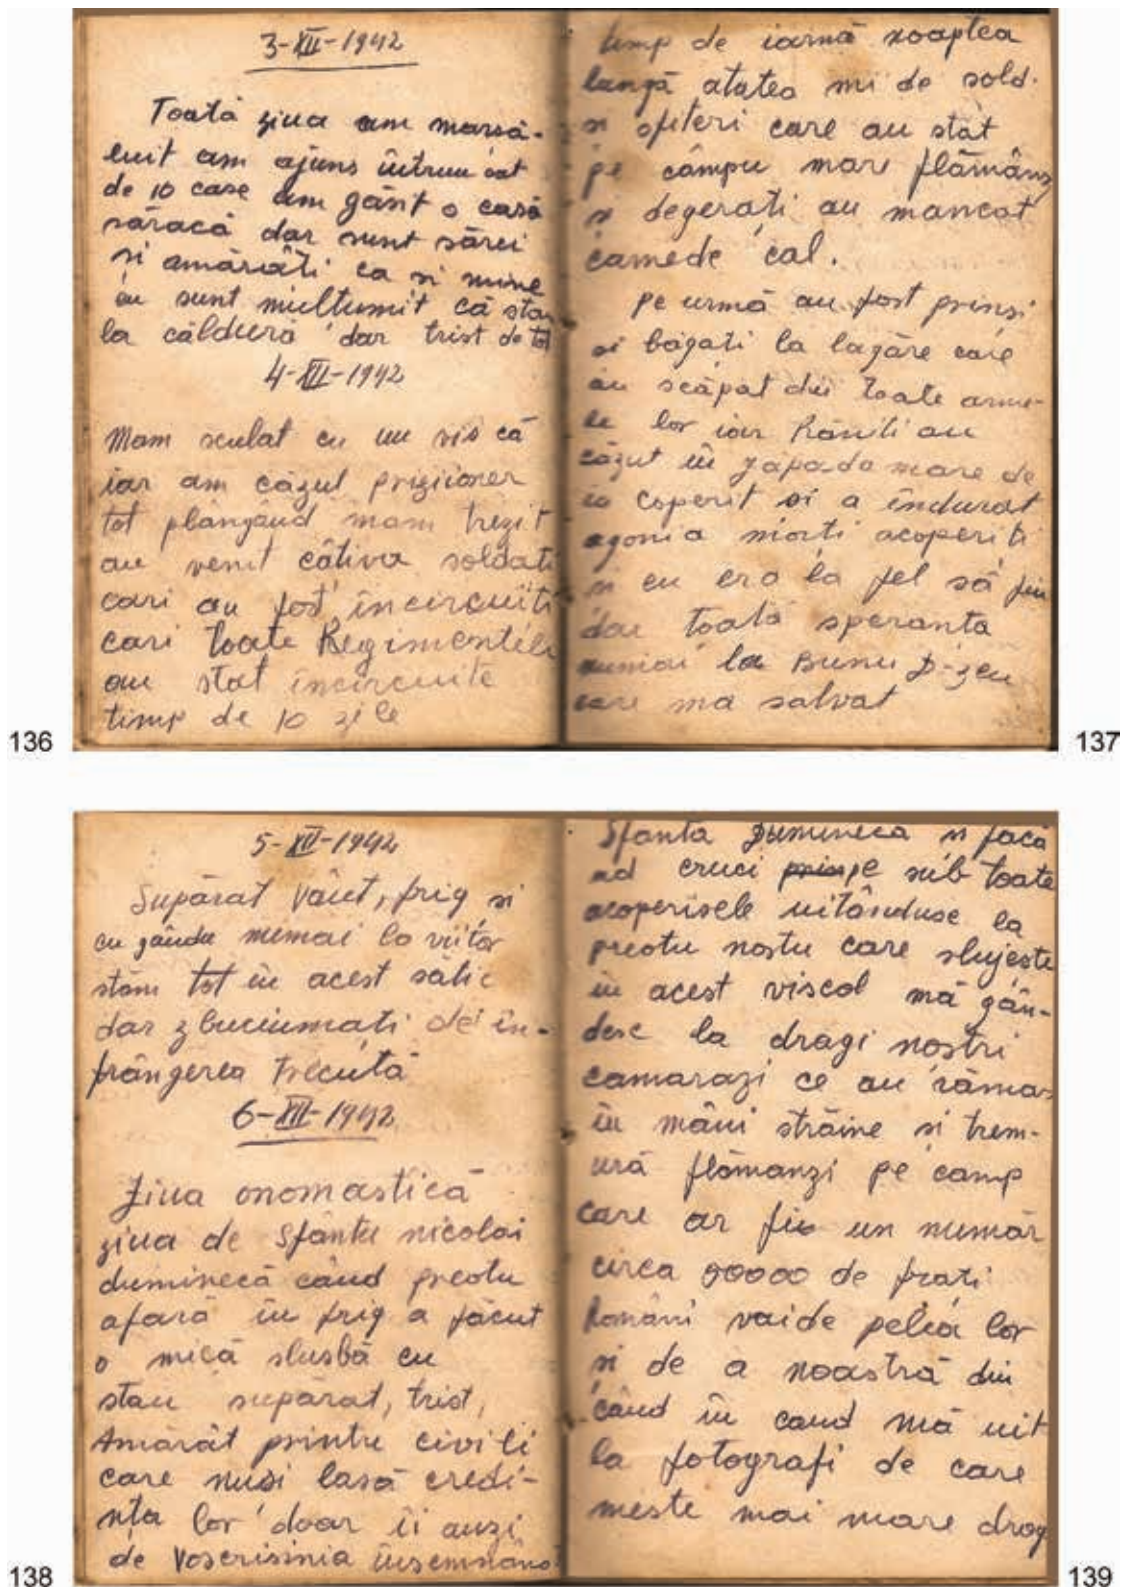 3-XII-1942
Toată ziua am marsă-
luit am ajuns întrun sat
de 10 case am găsit o casă
săracă dar sunt săraci
si amărâti ca si mine
eu sunt multumit că stau
la căldură dar trist de tot
4-XII-1942
Mam sculat cu un vis că
iar am căzut prizioner
tot plângand mam trezit
au venit câtiva soldati
cari au fost incircuiti
cari toate Regimentele
au stat incircuite
timp de 10 zile
136
timp de iarnă noaptea
langă atatea mi de sold.
si ofiteri care au stăt
pe câmpu mare flămânzi
si degerati au mancat
carnede cal.
Pe urmă au fost prinsi
si băgati la lagăre care
au scăpat din toate arme-
le lor iar Răniti au
căzut în zapada mare de
ia coperit si a îndurat
agonia morti acoperiti
si eu era la fel să fiu
dar toată speranta
numai la Bunu D-zeu
care ma salvat
137
5-XII-1942
Supărat Vânt, frig si
cu gându numai la viitor
stăm tot in acest sătic
dar zbuciumati de în-
frângerea trecută
6-XII-1942
Ziua onomastică
ziua de Sfântu nicolai
duminecă când preotu
afară în frig a făcut
o mică slusbă eu
stau supărat, trist,
Amărât printre civili
care nusi lasă credi-
nta lor doar ii auzi
de Voscrisinia însemnând
138
Sfanta Dumineca si faca
nd cruci prin pe sub toate
acoperisele uitânduse la
preotu nostu care slujeste
în acest viscol mă gân-
desc la dragi nostri
camarazi ce au rămas
în mâini străine si trem-
ură flămanzi pe camp
care ar fi un număr
circa 90000 de frati
Români vaide pelea lor
si de a noastră din
când in cand mă uit
la fotografi de care
meste mai mare drag
139